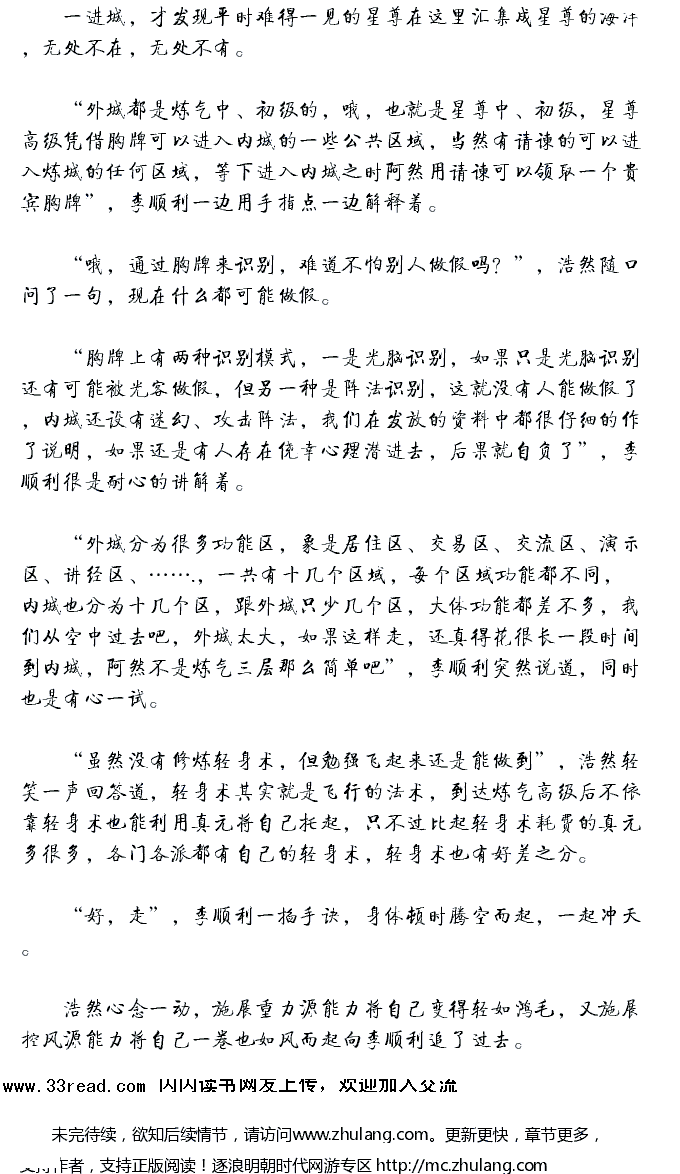 一进城，才发现平时难得一见的星尊在这里汇集成星尊的海洋
，无处不在，无处不有。
“外城都是炼气中、初级的，哦，也就是星尊中、初级，星尊
高级凭借胸牌可以进入内城的一些公共区域，当然有请谏的可以进
入炼城的任何区域，等下进入内城之时阿然用请谏可以领取一个贵
宾胸牌”，李顺利一边用手指点一边解释着。
“哦，通过胸牌来识别，难道不怕别人做假吗？”，浩然随口
问了一句，现在什么都可能做假。
“胸牌上有两种识别模式，一是光脑识别，如果只是光脑识别
还有可能被光客做假，但另一种是阵法识别，这就没有人能做假了
，内城还设有迷幻、攻击阵法，我们在发放的资料中都很仔细的作
了说明，如果还是有人存在侥幸心理潜进去，后果就自负了”，李
顺利很是耐心的讲解着。
“外城分为很多功能区，象是居住区、交易区、交流区、演示
区、讲经区、…….，一共有十几个区域，每个区域功能都不同，
内城也分为十几个区，跟外城只少几个区，大体功能都差不多，我
们从空中过去吧，外城太大，如果这样走，还真得花很长一段时间
到内城，阿然不是炼气三层那么简单吧”，李顺利突然说道，同时
也是有心一试。
“虽然没有修炼轻身术，但勉强飞起来还是能做到”，浩然轻
笑一声回答道，轻身术其实就是飞行的法术，到达炼气高级后不依
靠轻身术也能利用真元将自己托起，只不过比起轻身术耗费的真元
多很多，各门各派都有自己的轻身术，轻身术也有好差之分。
“好，走”，李顺利一掐手诀，身体顿时腾空而起，一起冲天
。
浩然心念一动，施展重力源能力将自己变得轻如鸿毛，又施展
控风源能力将自己一卷也如风而起向李顺利追了过去。
www.33read.com 闪闪读书网友上传，欢迎加入交流
未完待续，欲知后续情节，请访问www.zhulang.com。更新更快，章节更多，
支持作者，支持正版阅读！逐浪明朝时代网游专区 http://mc.zhulang.com